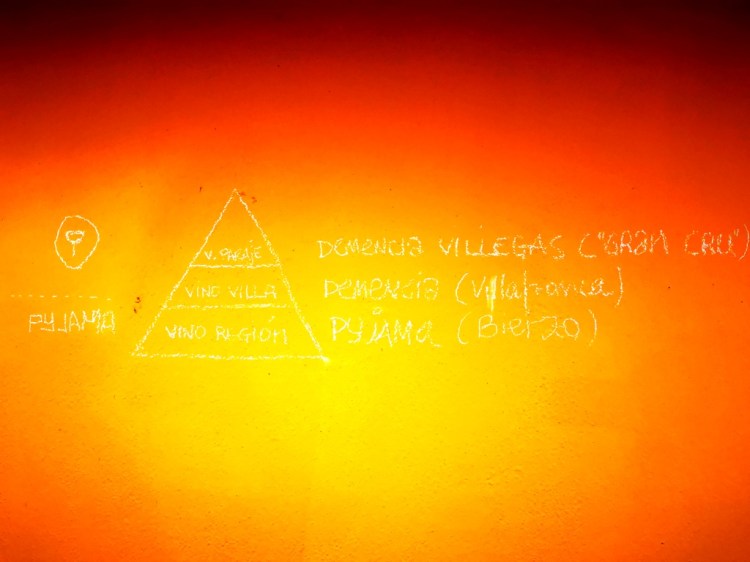 V. PARAJE DEMENCIA VILLEGAS ("GRAN CRU")
VINO VILLA DEMENCIA (Villafranca)
PYJAMA VINO REGIÓN PYJAMA (BIERZO)